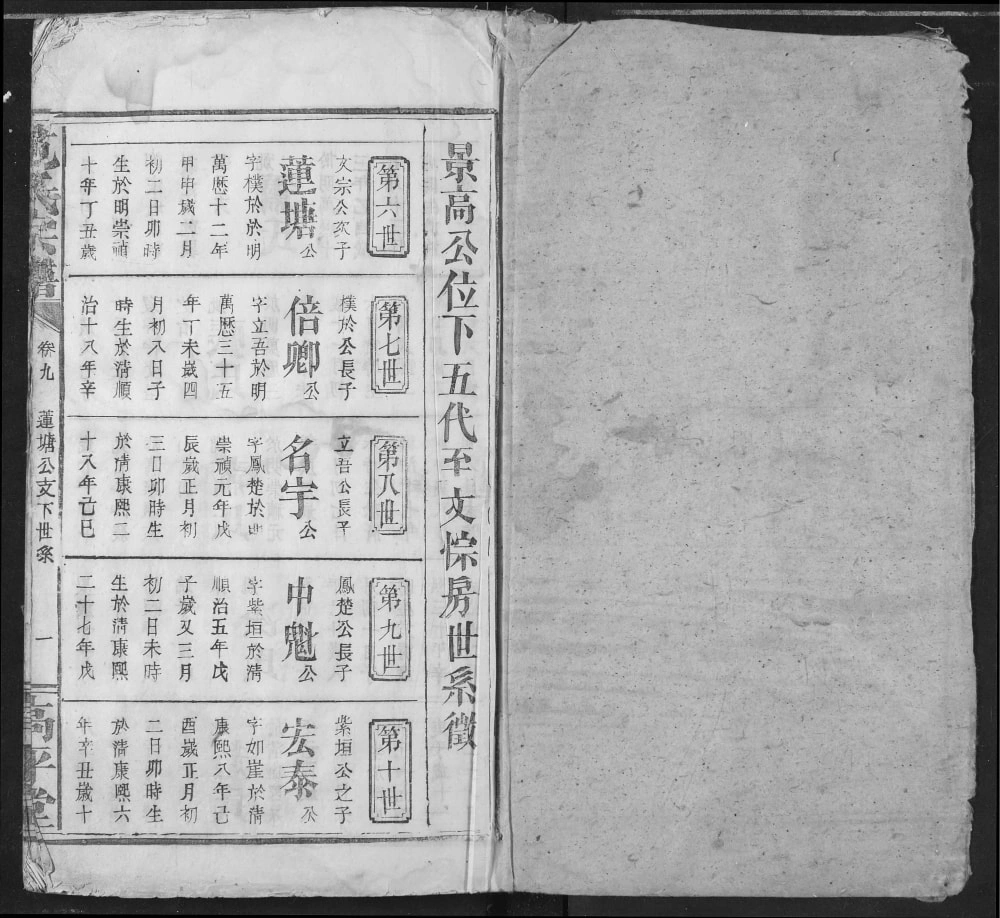 景高公位下五代至文悰房世系徵
第六世
文宗公次子
蓮塘公
字樸於於明
萬曆十二年
甲申歲二月
初二日卯時
生於明崇禎
十年丁丑歲
第七世
樸於公長子
倍卿公
字立吾於明
萬曆三十五
年丁未歲四
月初八日子
時生於清順
治十八年辛
第八世
立吾公長子
名宇公
字鳳楚於明
崇禎元年戊
辰歲正月初
三日卯時生
於清康熙二
十八年己巳
第九世
鳳楚公長子
中魁公
字紫垣於清
順治五年戊
子歲又三月
初二日未時
生於清康熙
二十七年戊
第十世
紫垣公之子
宏泰公
字如崖於清
康熙八年己
酉歲正月初
二日卯時生
於清康熙六
年辛丑歲十
氏宗譜
卷九
蓮塘公支下世系
一
高平堂